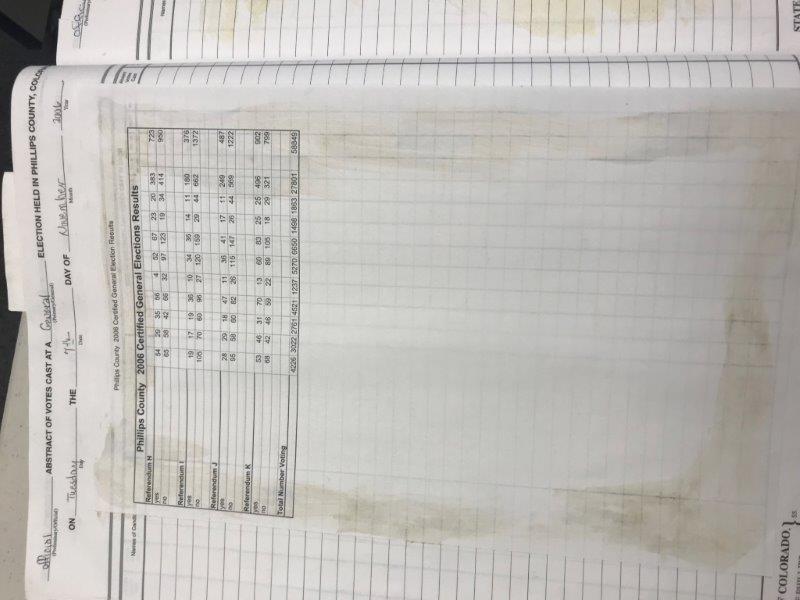 official ABSTRACT OF VOTES CAST AT A General ELECTION HELD IN PHILLIPS COUNTY,
(Primary/General)
ON Tuesday THE 7th DAY OF November 2006
Day Date Month Year
Phillips County 2006 Certified General Election Results
Names of
Phillips County 2006 Certified General Elections Results
Referendum H
yes 54 29 35 56 4 52 67 23 20 383 723
no 65 58 42 66 32 97 123 19 34 414 950
Referendum I
yes 19 17 19 36 10 34 35 14 11 180 376
no 105 70 60 96 27 120 159 29 44 662 1372
Referendum J
yes 28 29 18 47 11 36 41 17 11 249 487
no 95 58 60 82 26 115 147 26 44 569 1222
Referendum K
yes 53 46 31 70 13 60 83 25 25 496 902
no 68 42 46 59 22 89 105 18 29 321 799
Total Number Voting 4226 3022 2761 4521 1237 5270 6650 1498 1863 27801 58849
COLORADO, } SS.
STATE